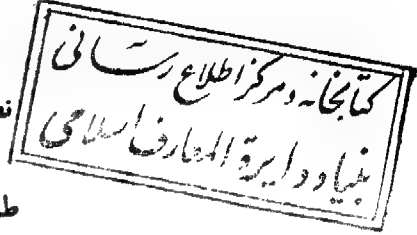 كتابخانه و مركز اطلاع رسانى
بنياد دايرة المعارف اسلامى